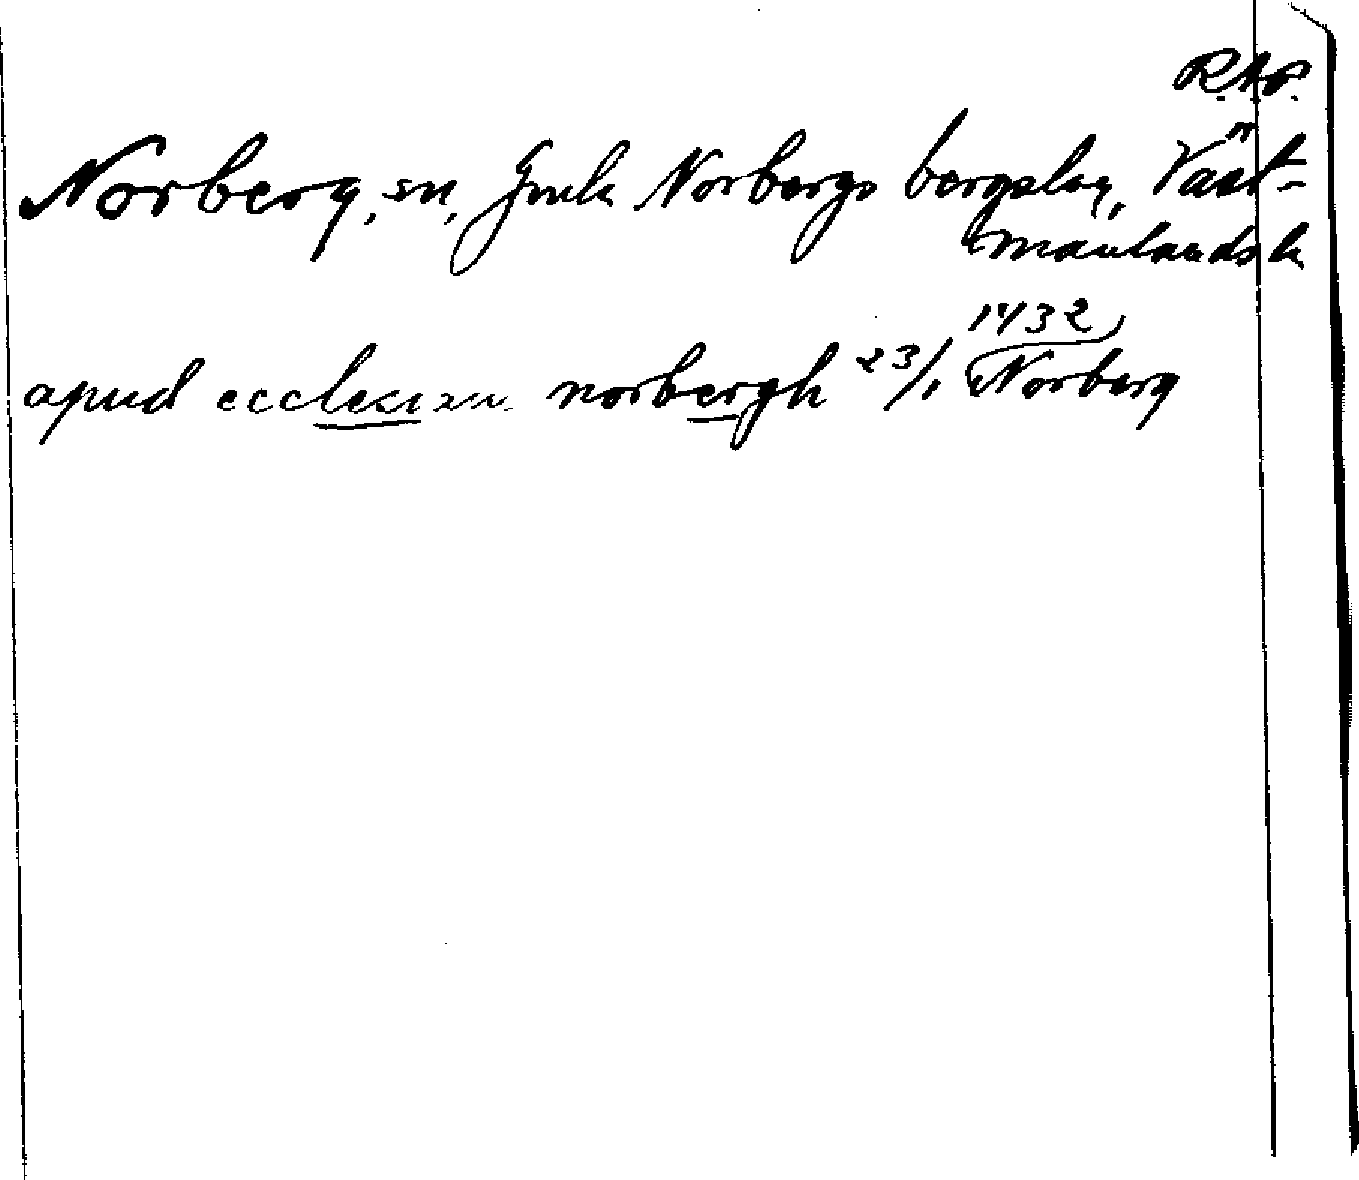 R.A.P.
Norberg, sn, Gmla Norbergs bergslag, Väst-
manlands l.
1432
apud ecclesiam norbergh 23/1 Norberg